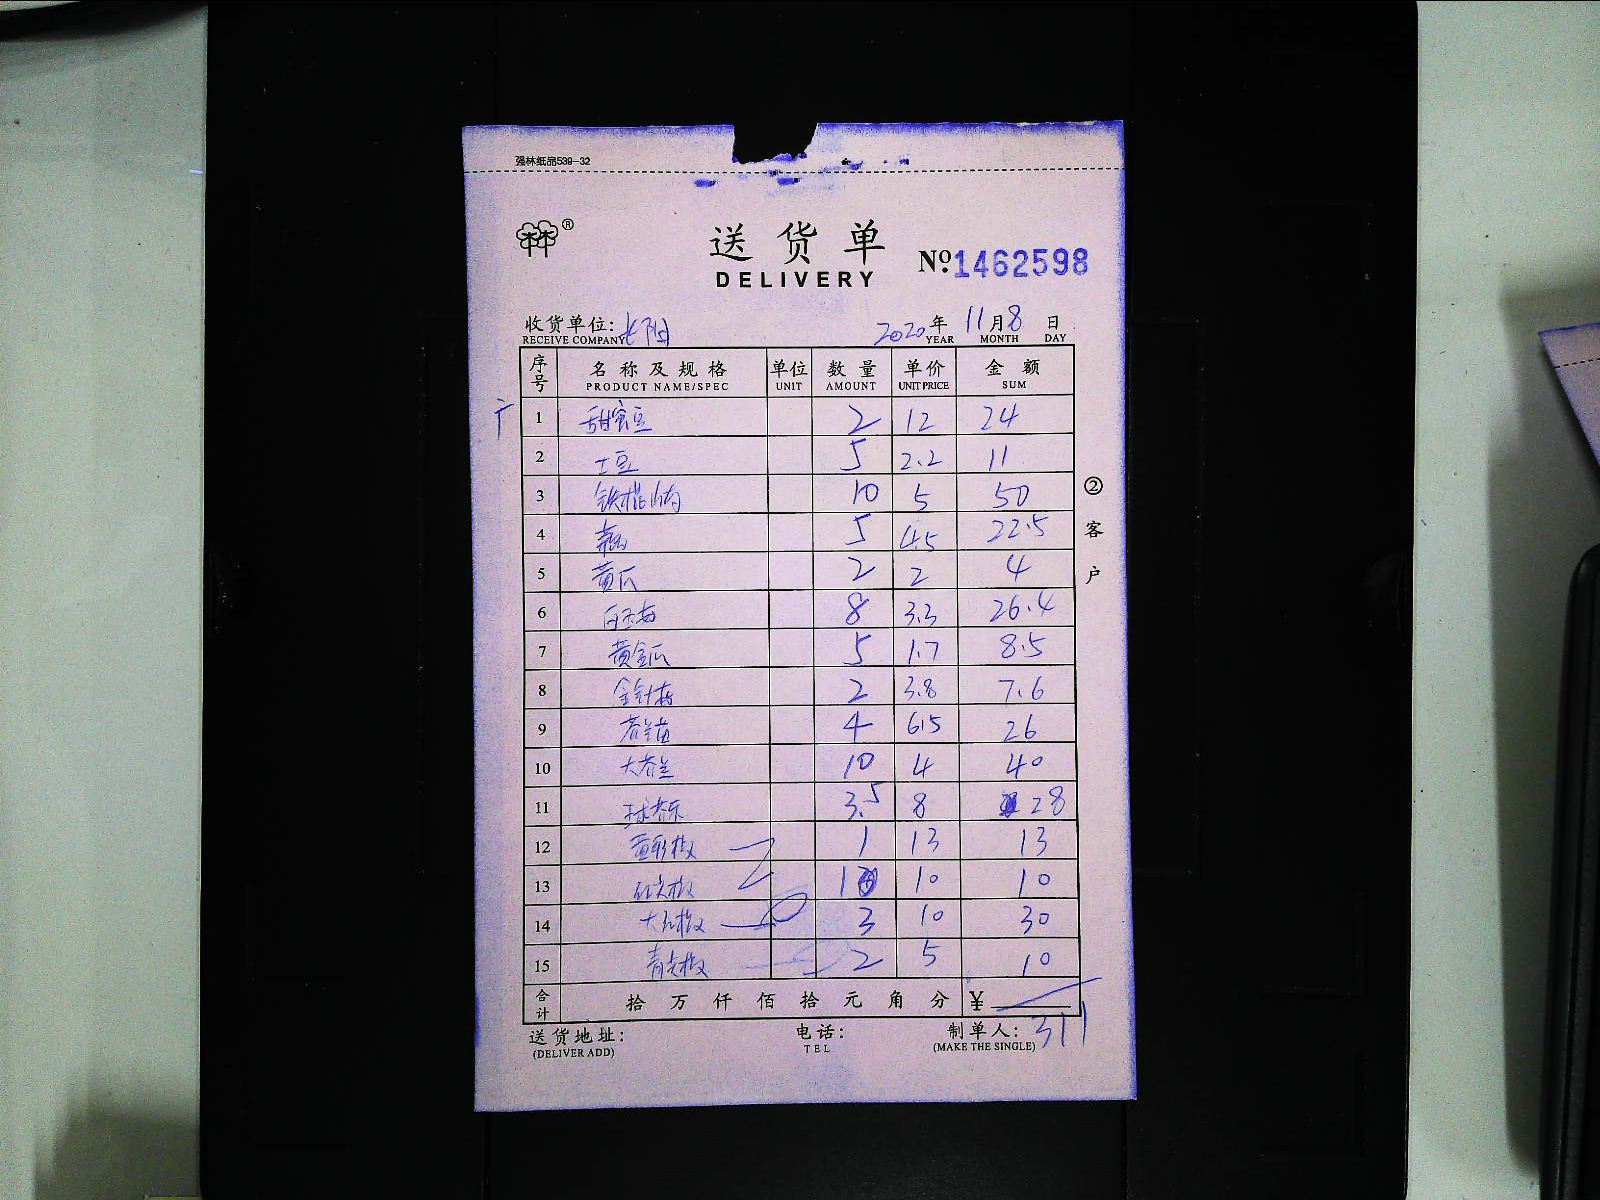 强林纸品539-32
®
送货单
DELIVERY
Nº 1462598
收货单位:长阳 2020年 11月8日
RECEIVE COMPANY YEAR MONTH DAY
序号 名称及规格 单位 数量 单价 金额
PRODUCT NAME/SPEC UNIT AMOUNT UNIT PRICE SUM
1 甜蜜豆 2 12 24
2 土豆 5 2.2 11
3 铁棍山药 10 5 50
4 5 4.5 22.5
5 黄瓜 2 2 4
6 白玉菇 8 3.3 26.4
7 黄金瓜 5 1.7 8.5
8 金针菇 2 3.8 7.6
9 芥兰苗 4 6.5 26
10 大芥兰 10 4 40
11 3.5 8 28
12 黄彩椒 1 13 13
13 红尖椒 1 10 10
14 大红椒 3 10 30
15 青尖椒 2 5 10
合计 拾万仟佰拾元角分 ¥
311
送货地址: 电话: 制单人:
(DELIVER ADD) TEL (MAKE THE SINGLE)
②客户